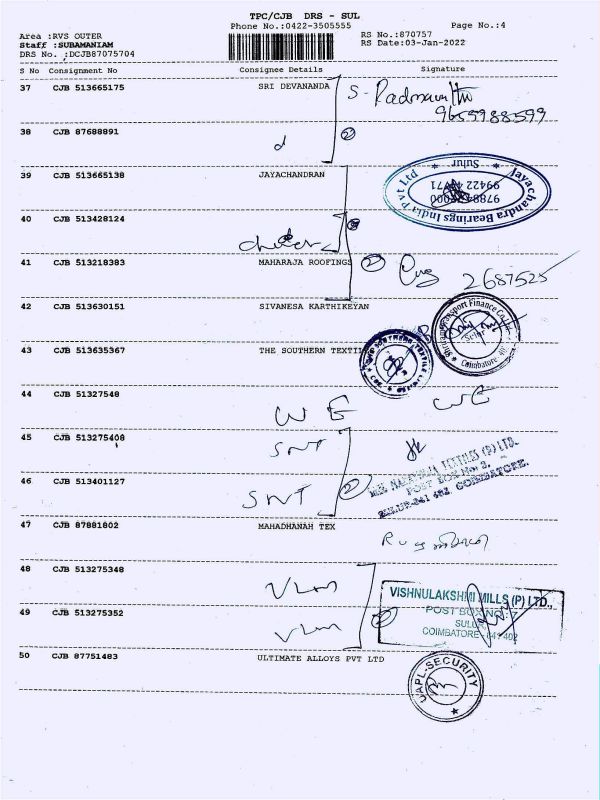 TPC/CJB DRS - SUL
Phone No.:0422-3505555
Page No.:4
Area :RVS OUTER
RS No.:870757
Staff :SUBAMANIAM
RS Date:03-Jan-2022
DRS No. :DCJB87075704
S No Consignment No Consignee Details Signature
37 CJB 513665175 SRI DEVANANDA S. Padmavathi
9659988599
38 CJB 87688891 2
39 CJB 513665138 JAYACHANDRAN
Jayachandra Bearings India Pvt Ltd
Sulur
40 CJB 513428124
41 CJB 513218383 MAHARAJA ROOFINGS 2 2687525
42 CJB 513630151 SIVANESA KARTHIKEYAN
Shriram Transport Finance Co.
Sulur
Coimbatore
43 CJB 513635367 THE SOUTHERN TEXTIL
44 CJB 51327548 WE WE
45 CJB 513275408 SNT
46 CJB 513401127 SNT 2
TEXTILES (P) LTD.
POST BOX No: 2.
SULUR-641 402. COIMBATORE.
47 CJB 87881802 MAHADHANAH TEX
48 CJB 513275348 VLM
VISHNULAKSHMI MILLS (P) LTD.,
POST BOX NO: 7
SULUR
COIMBATORE - 641 402
49 CJB 513275352 VLM 2
50 CJB 87751483 ULTIMATE ALLOYS PVT LTD
UAPL-SECURITY